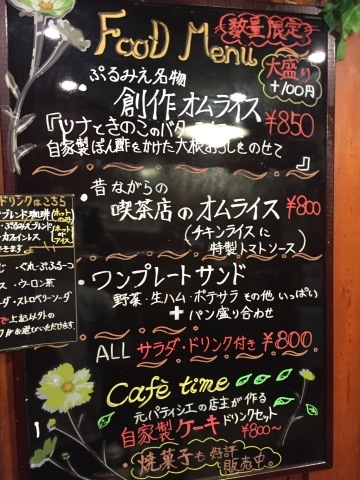 FooD Menu
数量限定
大盛り
+100円
ぷるみえ名物
創作オムライス ¥850
『ツナときのこのバター
自家製ぽん酢をかけた大根おろしをのせて』
昔ながらの
喫茶店のオムライス ¥800
(チキンライスに
特製トマトソース)
ワンプレートサンド
野菜・生ハム・ポテサラ その他 いっぱい
+ パン盛り合わせ
ALL サラダ・ドリンク付き ¥800
Cafè time
元パティシエの店主が作る
自家製ケーキ ドリンクセット
¥800~
・焼菓子も好評
販売中。
ドリンクはこちら
ブレンド珈琲
ぷるみえブレンド
カフェインレス
ホット
or
アイス
できます
・ぐれーぷふるーつ
ス・ウーロン茶
ーダ・ストロベリーソーダ
で上記以外の
お選びいただけます